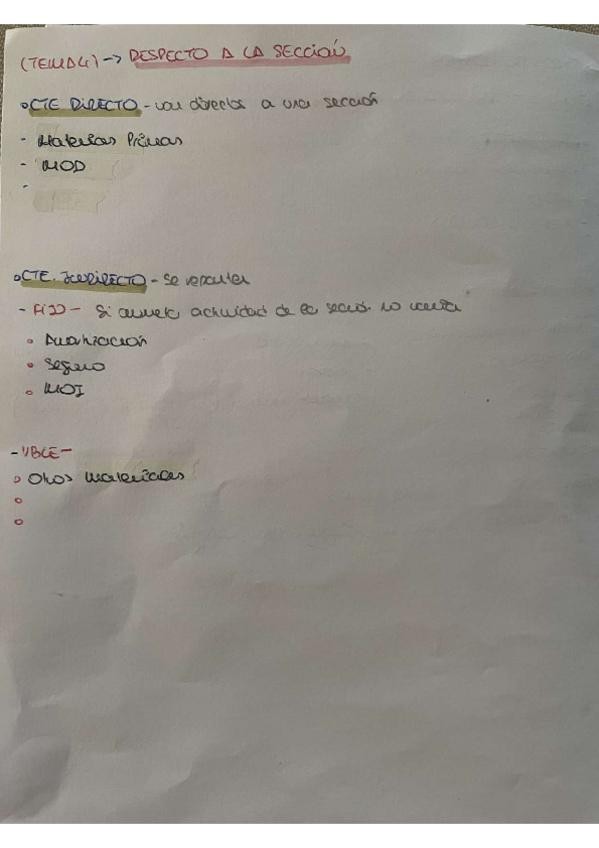 (TEMA 4) -> RESPECTO A LA SECCIÓN
CTE DIRECTO - van directos a una sección
- Materias Primas
- MOD
-
CTE. INDIRECTO - Se reparten
- FIJO - Si aumenta actividad de la secció. no varía
Amortización
Seguro
MOI
- VBLE -
Otros materiales